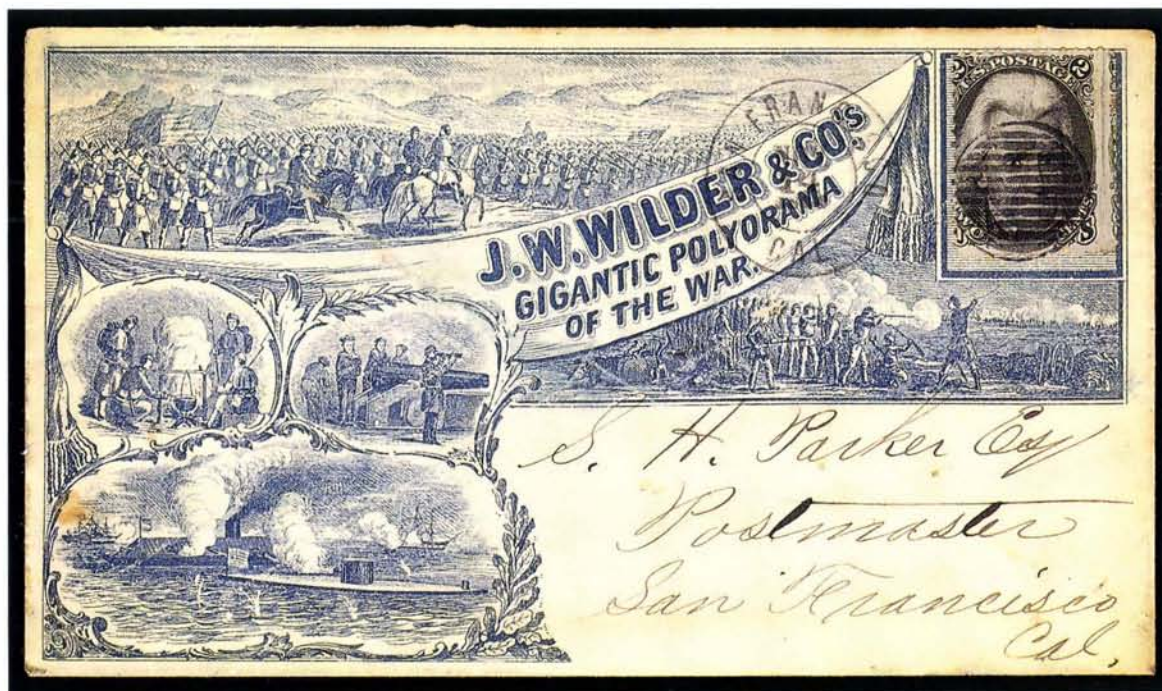 J.W. WILDER & CO'S
GIGANTIC POLYORAMA
OF THE WAR.
FRAN
CAL
2 U.S. POSTAGE 2
S. H. Parker Esq
Postmaster
San Francisco
Cal.